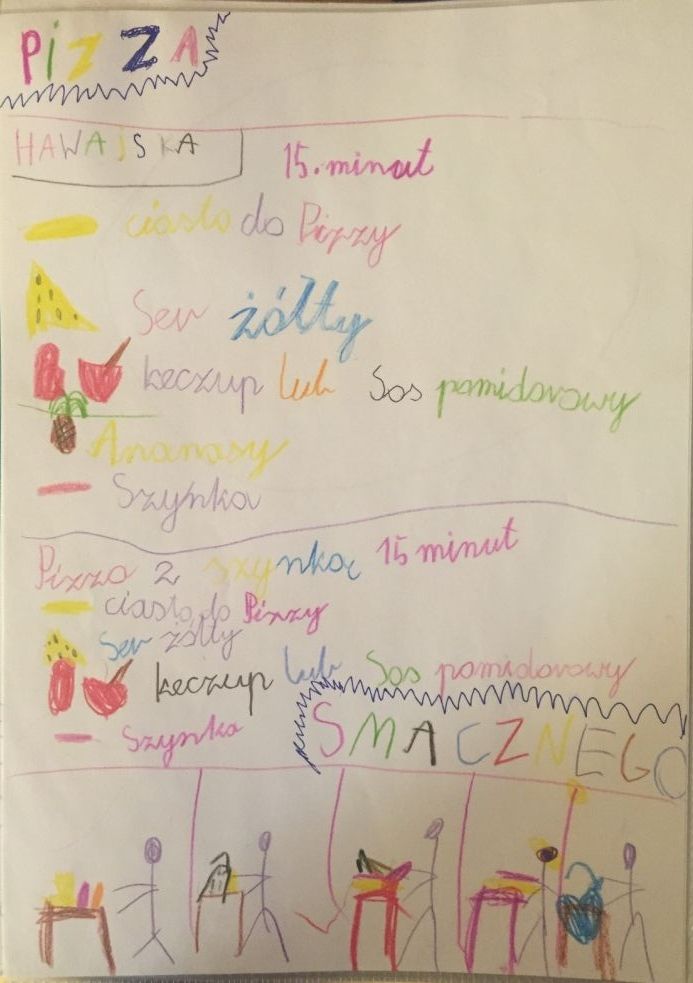 PiZZA
HAWAJSKA
15.minut
ciasto do Pizzy
Ser żółty
keczup lub Sos pomidorowy
Ananasy
Szynka
Pizza z szynką 15 minut
ciasto do Pizzy
Ser żółty
keczup lub Sos pomidorowy
Szynka
SMACZNEGO